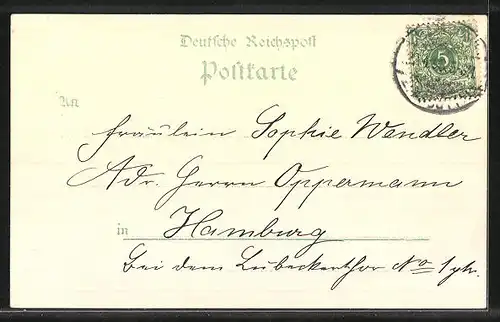 Deutsche Reichspost
Postkarte
An
Fräulein Sophie Wendler
Adr. Herrn Oppermann
in Hamburg
Bei dem Lübeckerthor No 1 ptr.
5